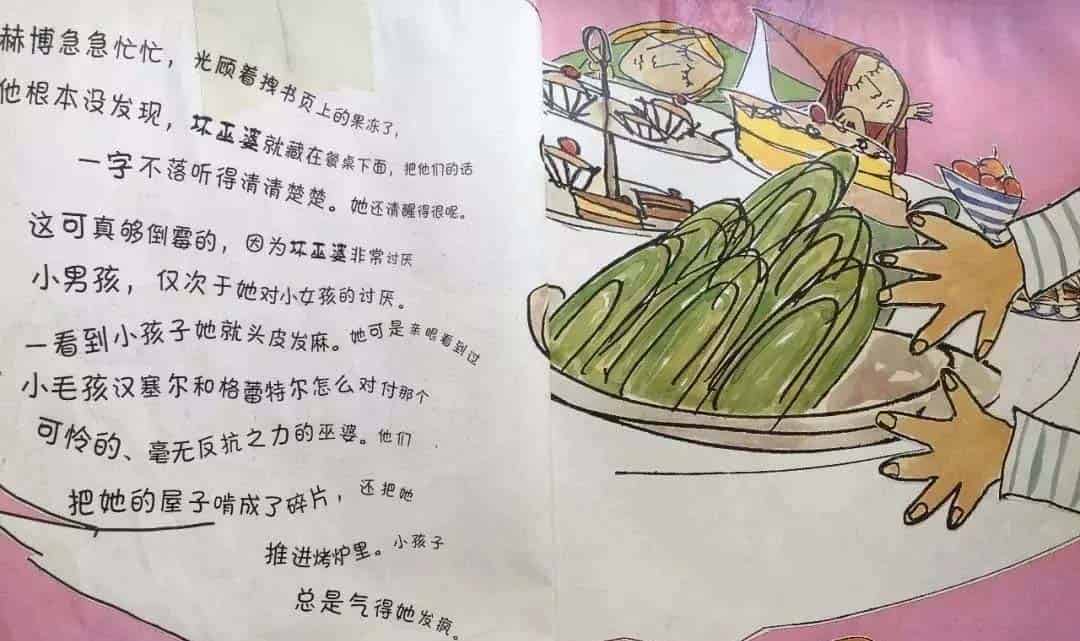 赫博急急忙忙，光顾着拽书页上的果冻了，
他根本没发现，坏巫婆就藏在餐桌下面，把他们的话
一字不落听得清清楚楚。她还清醒得很呢。
这可真够倒霉的，因为坏巫婆非常讨厌
小男孩，仅次于她对小女孩的讨厌。
一看到小孩子她就头皮发麻。她可是亲眼看到过
小毛孩汉塞尔和格蕾特尔怎么对付那个
可怜的、毫无反抗之力的巫婆。他们
把她的屋子啃成了碎片，还把她
推进烤炉里。小孩子
总是气得她发疯。